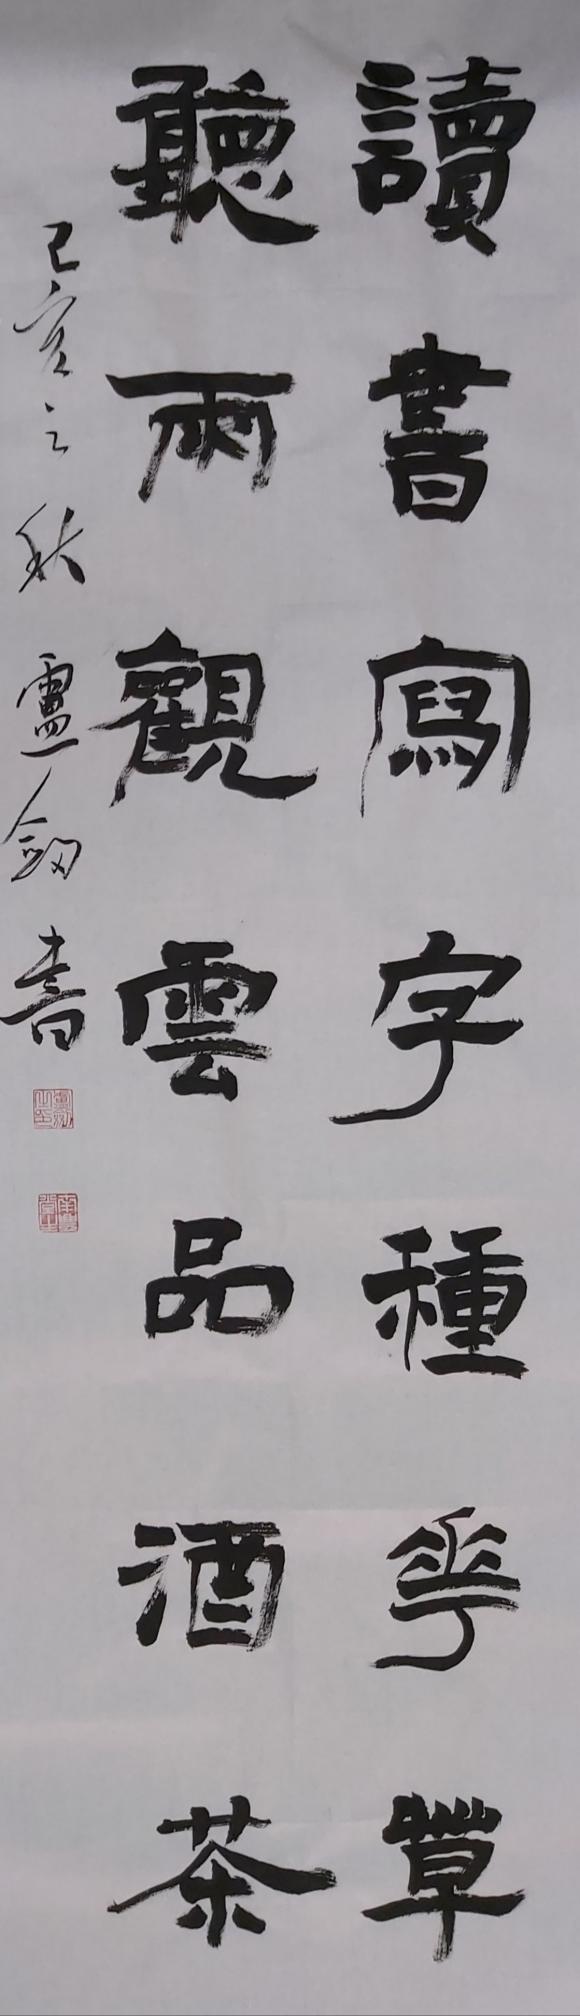 讀書寫字種花草
聽雨觀雲品酒茶
己亥之秋盧劍書